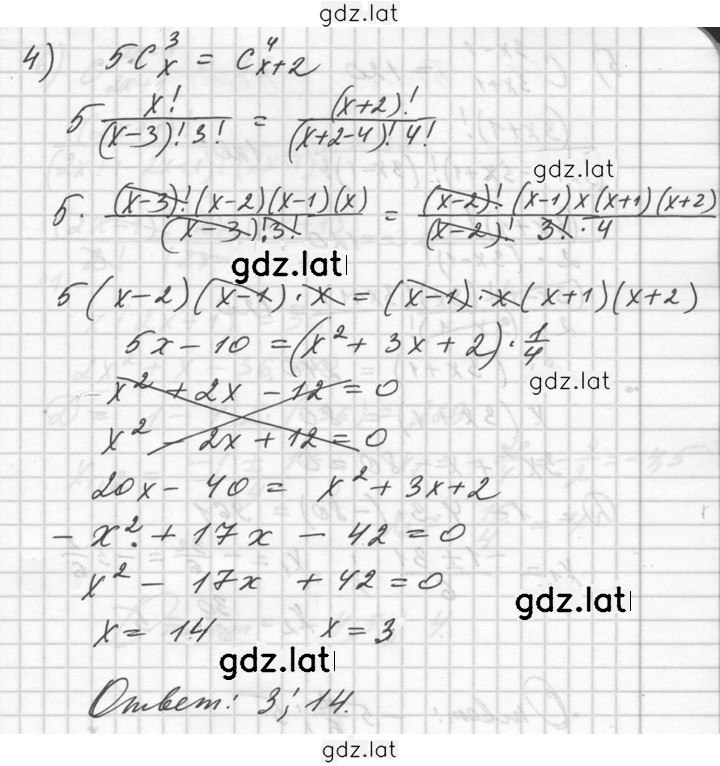 gdz.lat
4) 5C³ₓ = C⁴ₓ₊₂
5 x!/((x-3)! 3!) = (x+2)!/((x+2-4)! 4!)
gdz.lat
5 · ((x-3)! (x-2)(x-1)(x))/((x-3)! 3!) = ((x-2)! (x-1) x (x+1)(x+2))/((x-2)! 3! · 4)
gdz.lat
5(x-2)(x-1) · x = (x-1) · x (x+1)(x+2)
5x - 10 = (x² + 3x + 2) · 1/4
gdz.lat
x² + 2x - 12 = 0
x² - 2x + 12 = 0
20x - 40 = x² + 3x + 2
- x² + 17x - 42 = 0
x² - 17x + 42 = 0
gdz.lat
x = 14 x = 3
gdz.lat
Ответ: 3; 14.
gdz.lat